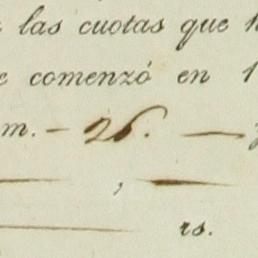 las cuotas que
comenzó en 1
m. — 26. —
— , —
rs.